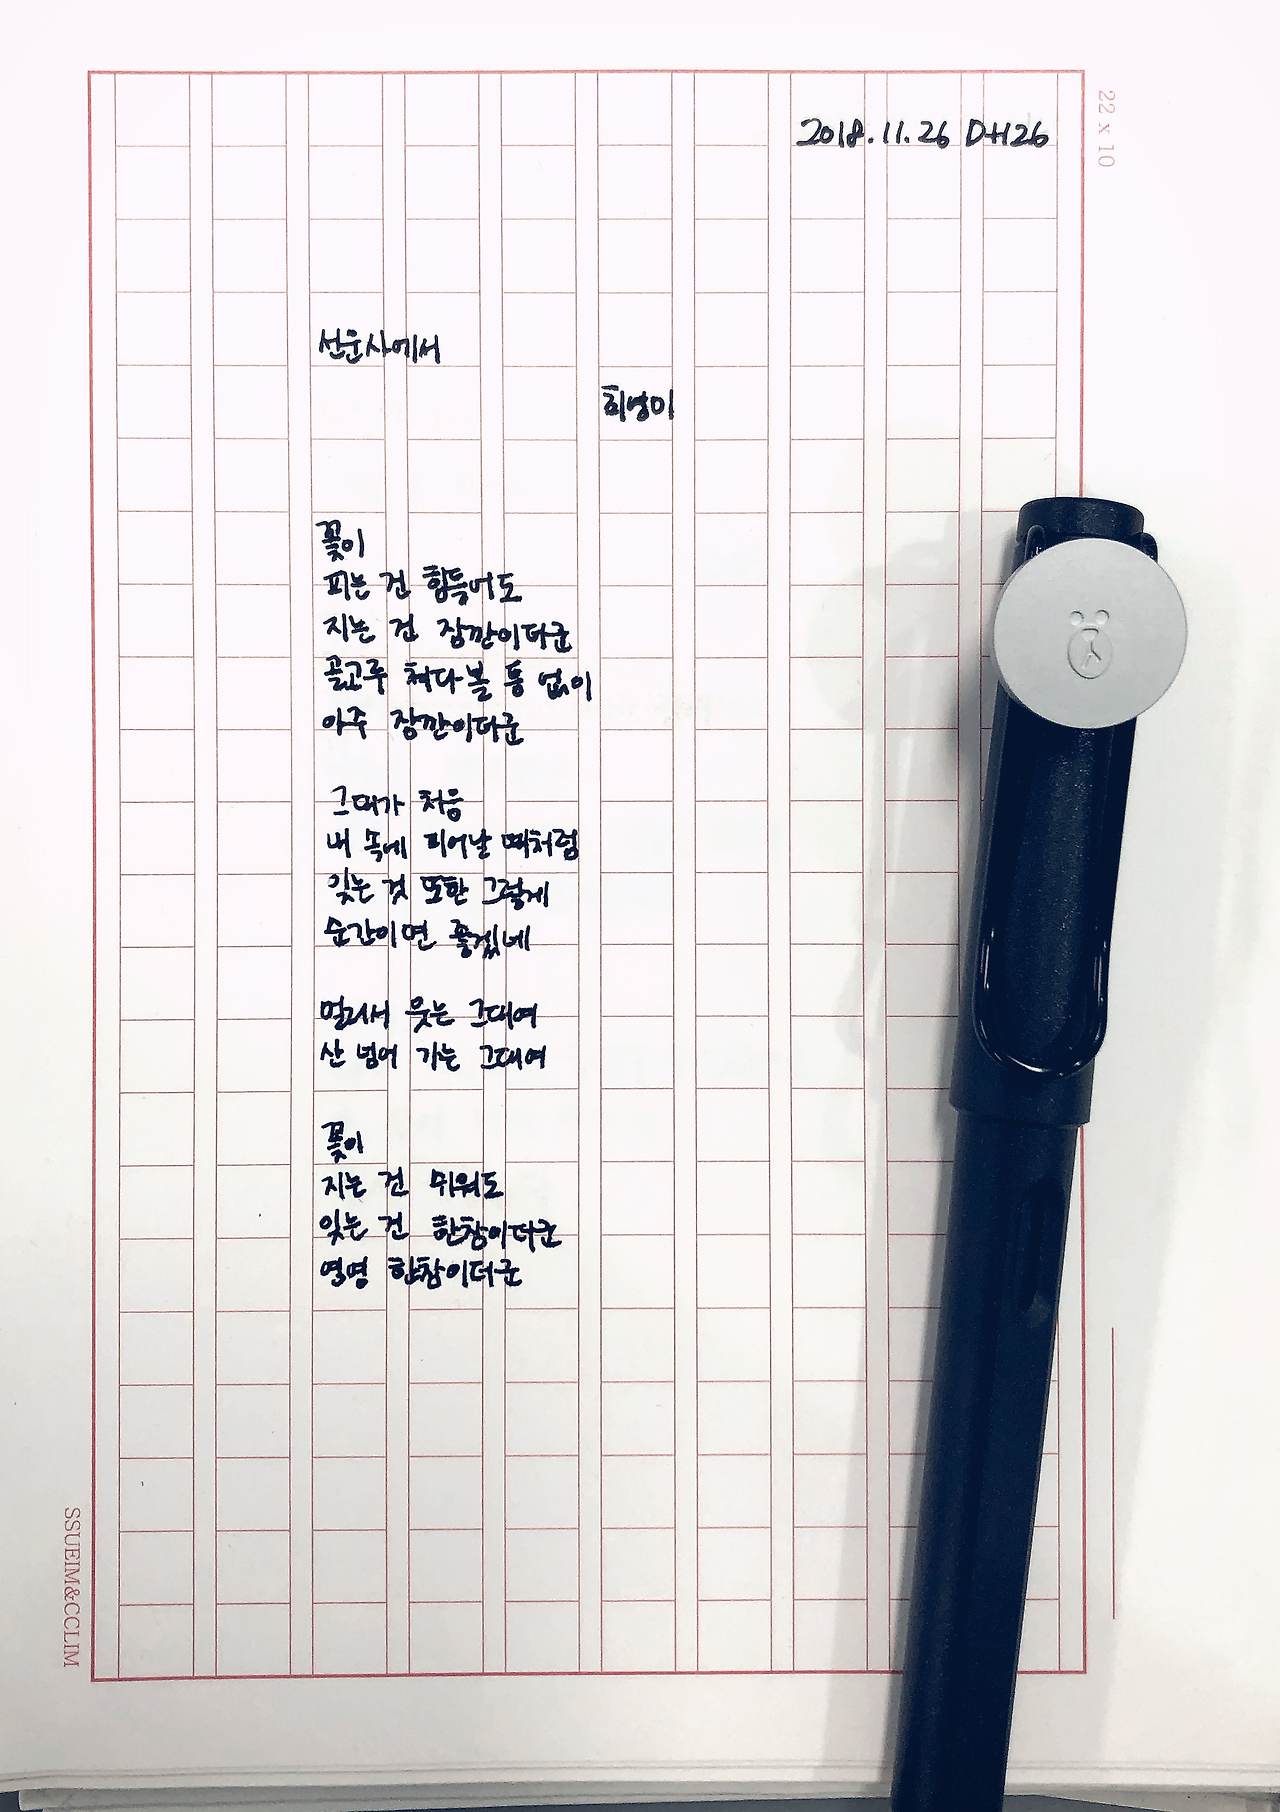 22 x 10
2018.11.26 D+126
선운사에서
최영미
꽃이
피는 건 힘들어도
지는 건 잠깐이더군
골고루 쳐다볼 틈 없이
아주 잠깐이더군
그대가 처음
내 속에 피어날 때처럼
잊는 것 또한 그렇게
순간이면 좋겠네
멀리서 웃는 그대여
산 넘어 가는 그대여
꽃이
지는 건 쉬워도
잊는 건 한참이더군
영영 한참이더군
SSUEIM&CCLIM